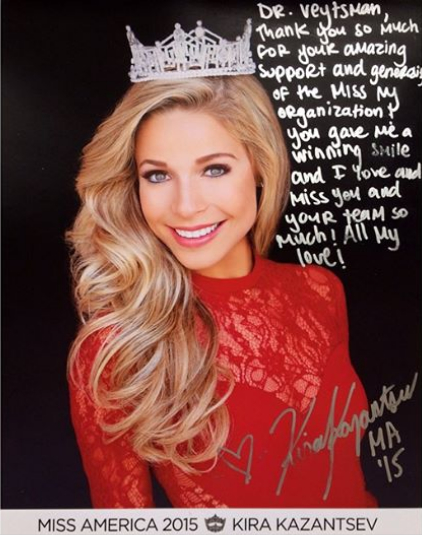 DR. Veytsman,
Thank you so much
FOR YOUR amazing
support and generosi
of the Miss NY
organization!
you gave me a
winning smile
and I love and
miss you and
your team so
much! All My
love!
♡ Kira Kazantsev
MA
'15
MISS AMERICA 2015 KIRA KAZANTSEV